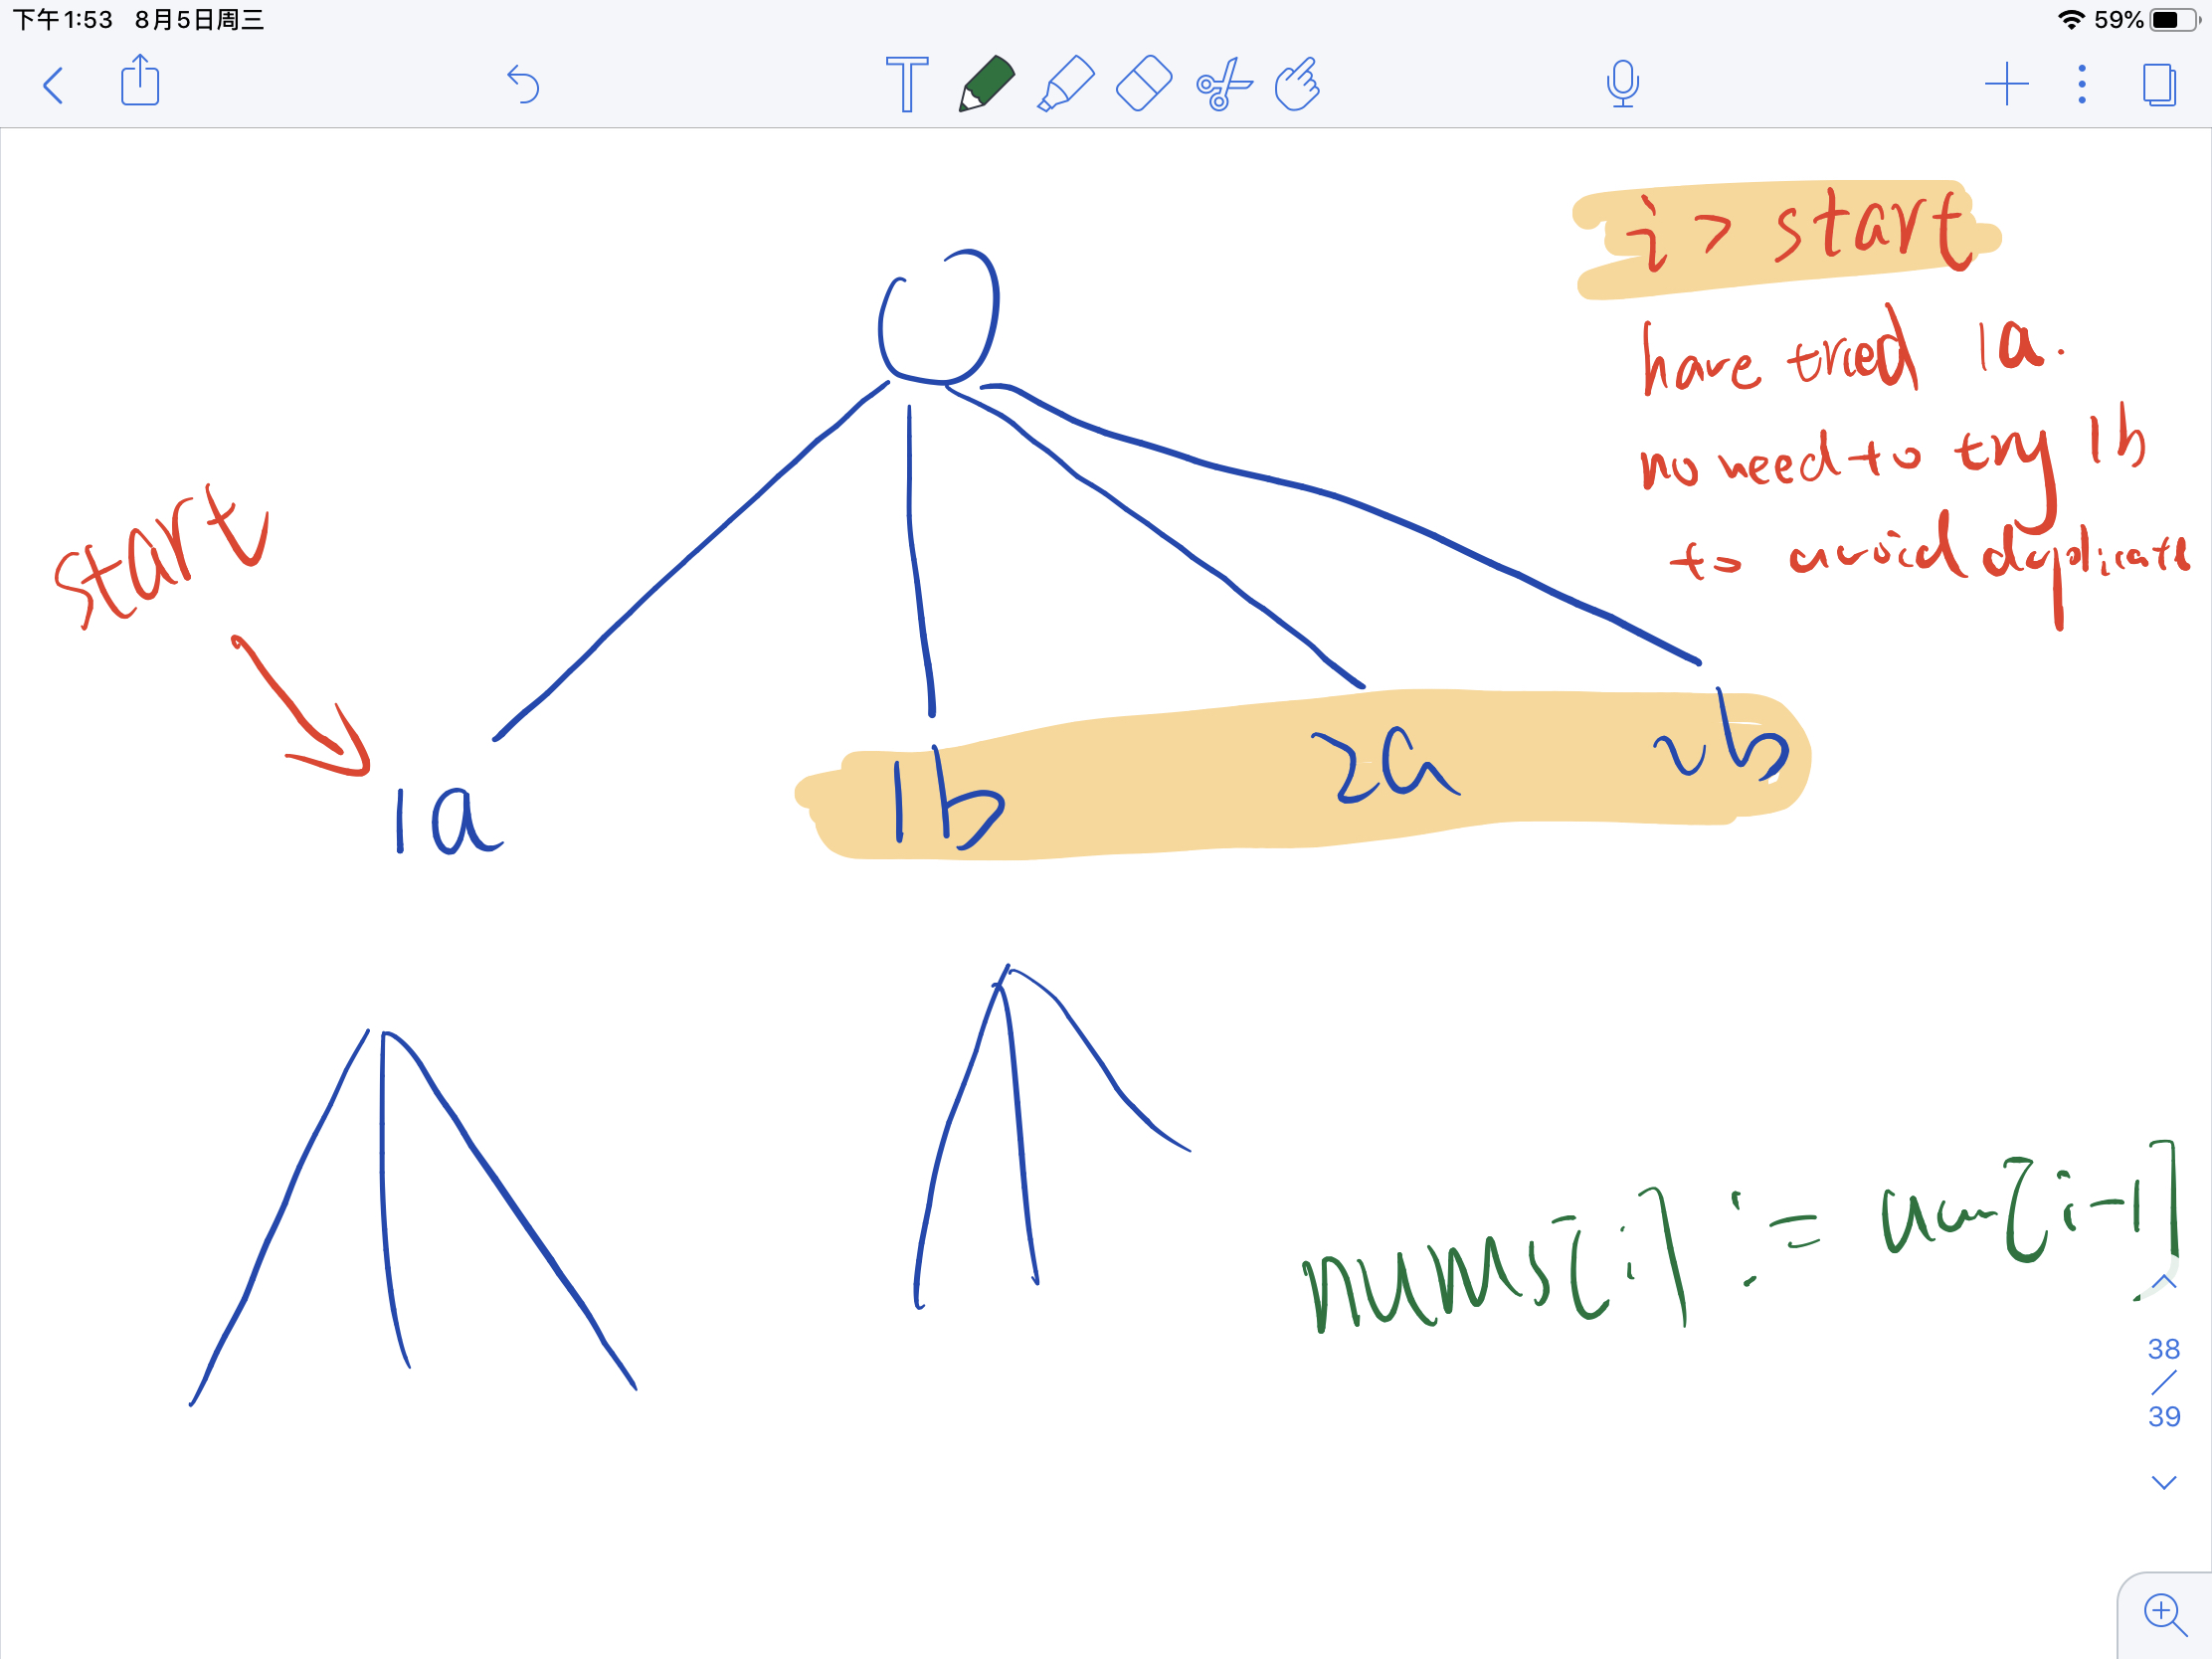 下午1:53 8月5日周三
59%
T
i > start
have tried 1a.
no need to try 1b
to avoid duplicate
start
1a
1b
2a
2b
nums[i] != arr[i-1]
38
/
39